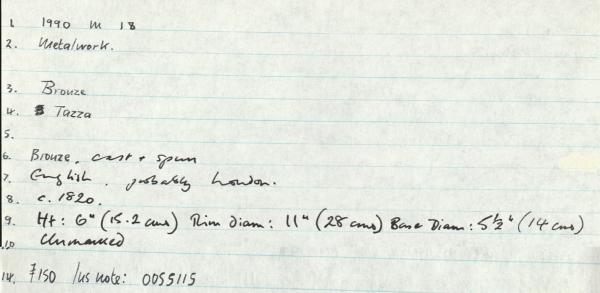 1 1990 M 18
2. Metalwork.
3. Bronze
4. Tazza
5.
6. Bronze, cast + spun
7. English, probably London.
8. c. 1820.
9. Ht: 6" (15.2 cms) Rim diam: 11" (28 cms) Base Diam: 5½" (14 cms)
10 Unmarked
14. £150 Ins note: 0055115